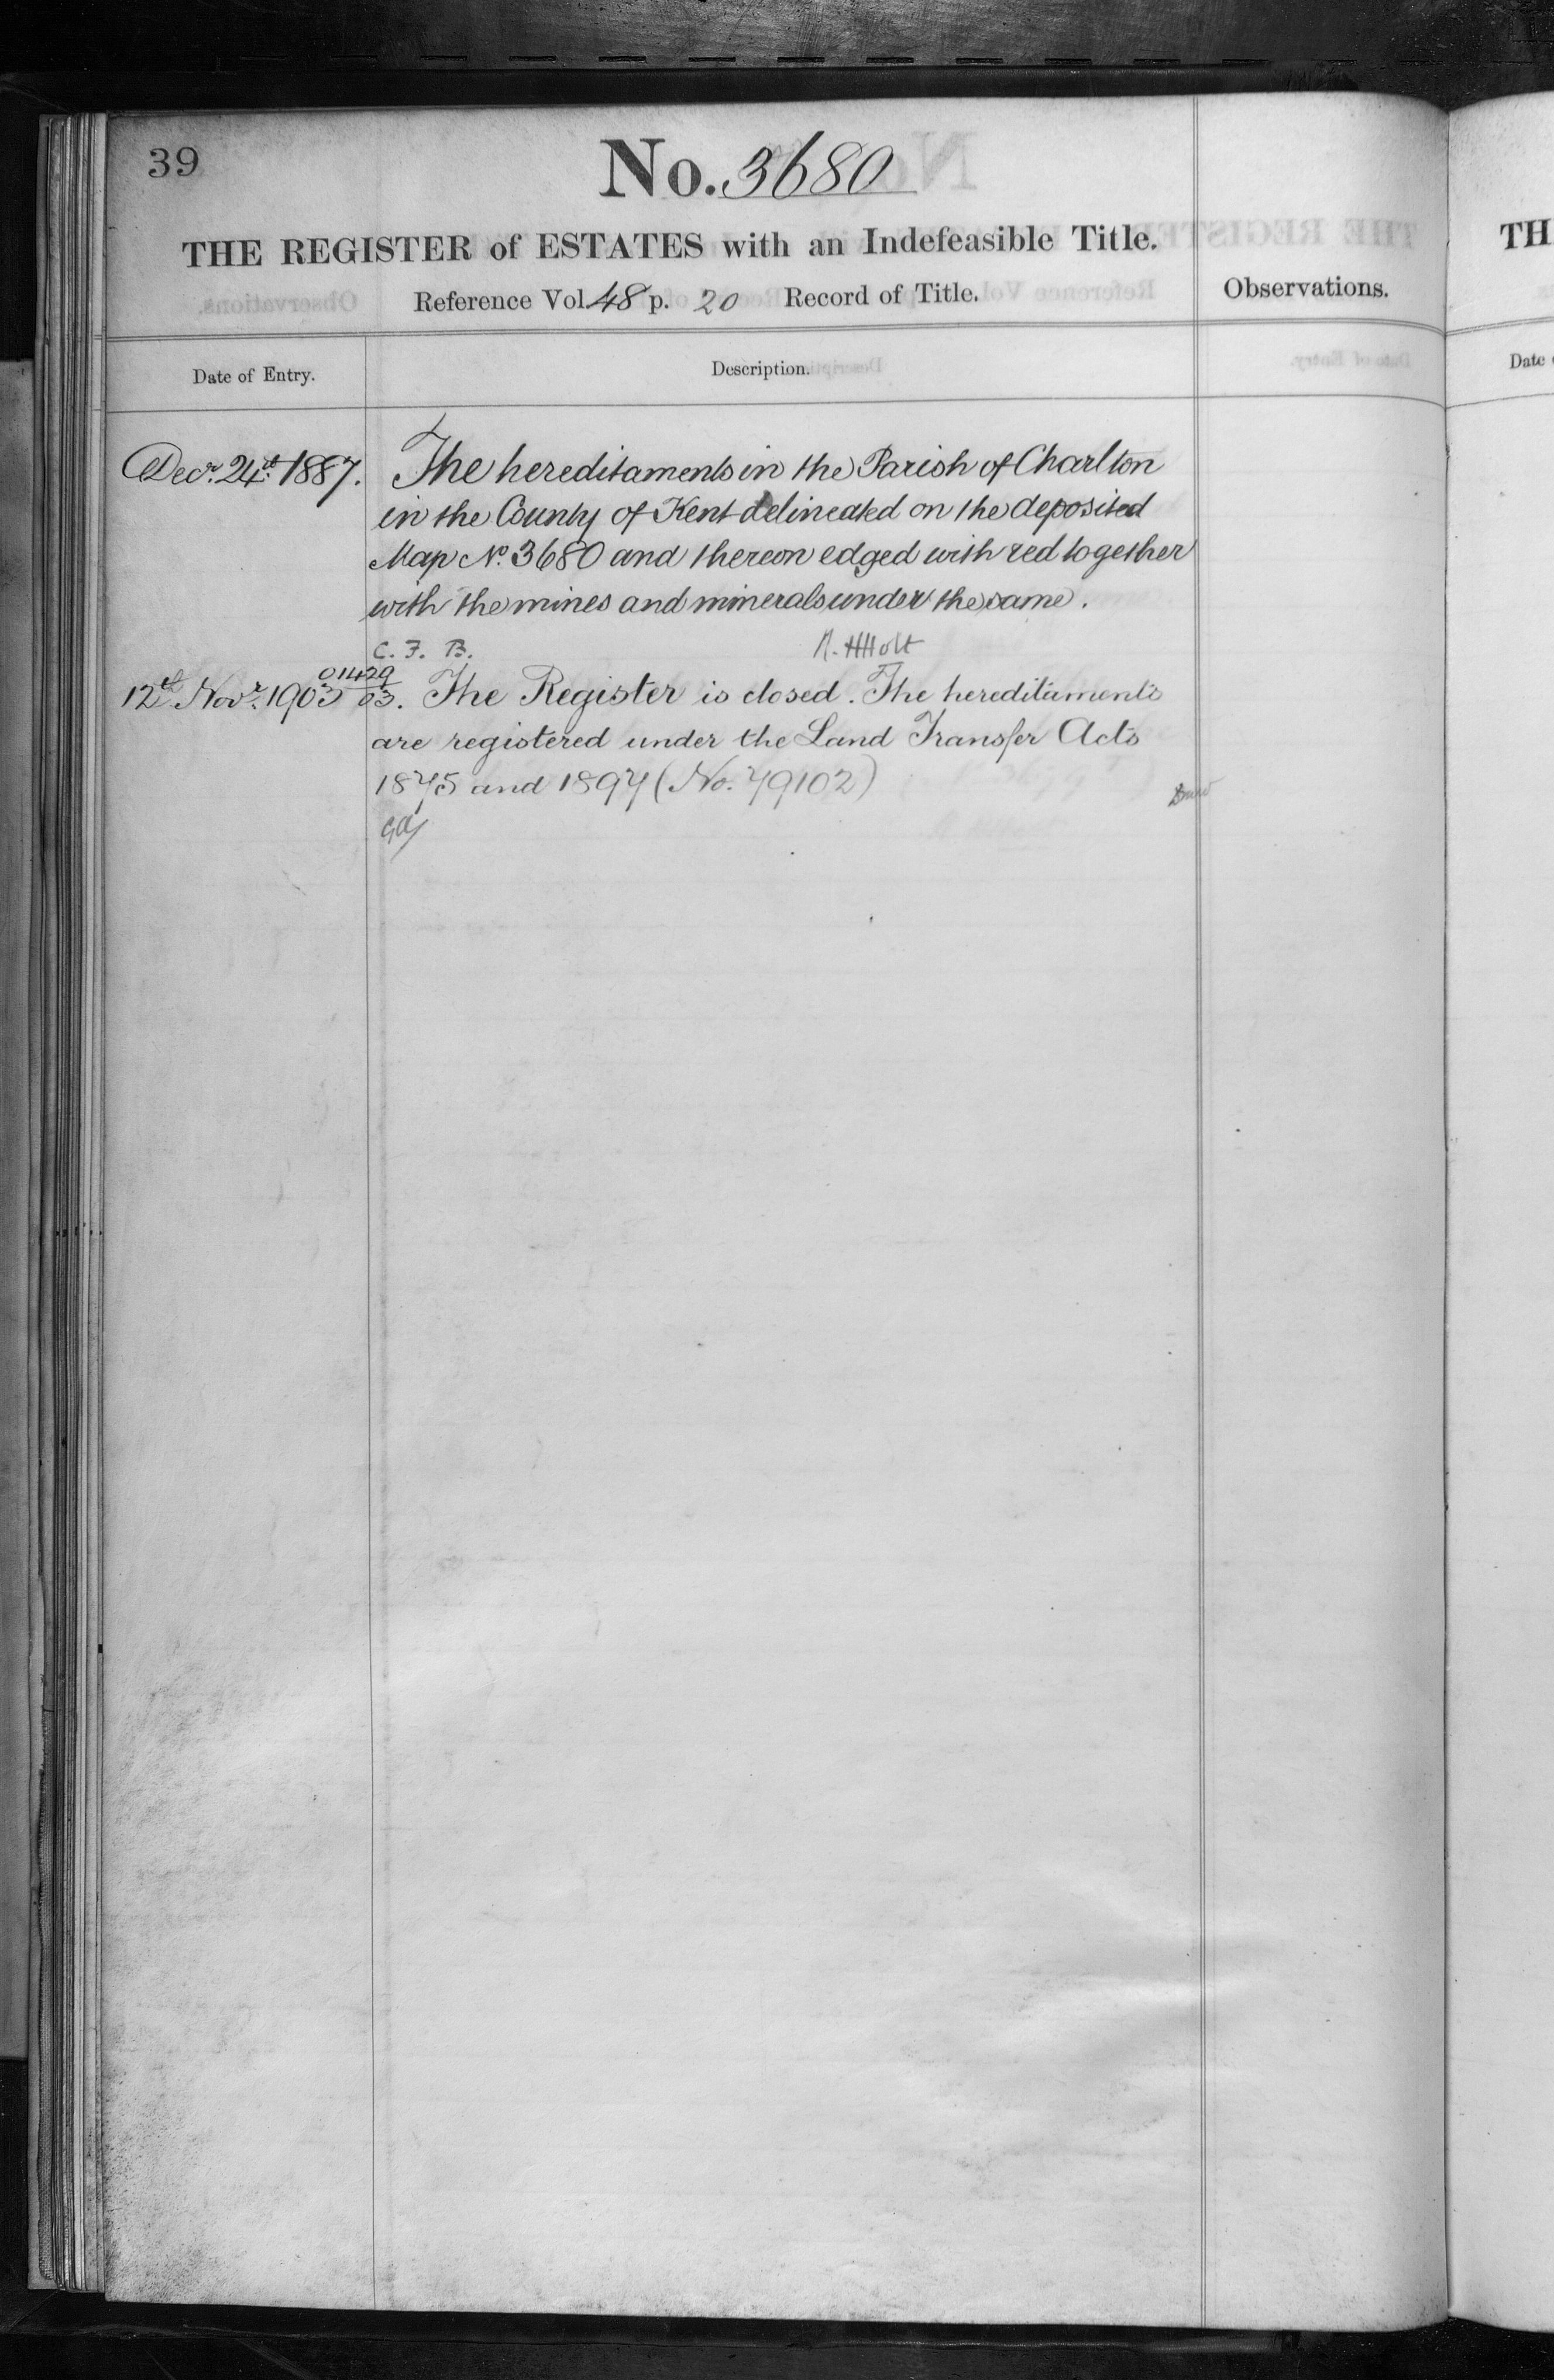 39
No. 3680
THE REGISTER of ESTATES with an Indefeasible Title.
Reference Vol. 48 p. 20 Record of Title.
Observations.
Date of Entry.
Description.
Decr. 24th 1887. The hereditaments in the Parish of Charlton
in the County of Kent delineated on the deposited
Map No. 3680 and thereon edged with red together
with the mines and minerals under the same.
C. F. B. R. HHolt
01429
12th Novr. 1903 03. The Register is closed. The hereditaments
are registered under the Land Transfer Acts
1875 and 1897 (No. 79102)
TH
Date